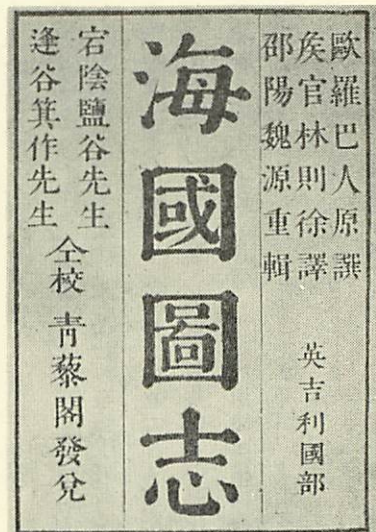 歐羅巴人原譔
矦官林則徐譯
邵陽魏源重輯
英吉利國部
海國圖志
宕陰鹽谷先生
逢谷箕作先生
仝校
青藜閣發兌